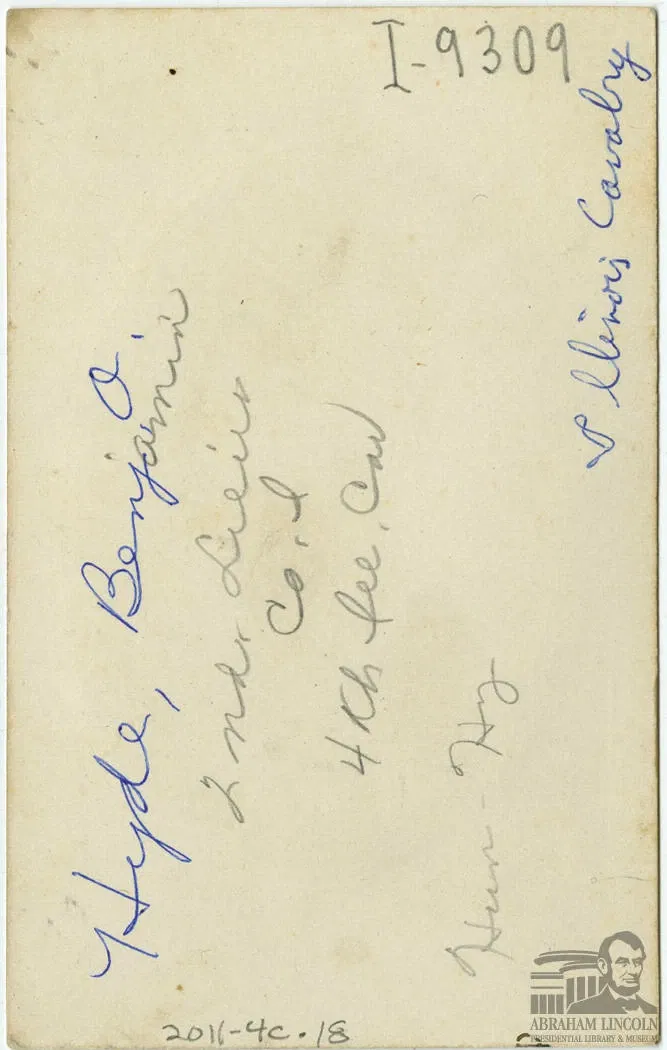 I-9309
Illinois Cavalry
Hyde, Benj. O.
Benjamin
2nd Lieut
Co. I
4th Ill. Cav
Hun - Hy
2011-4c.18
ABRAHAM LINCOLN
PRESIDENTIAL LIBRARY & MUSEUM